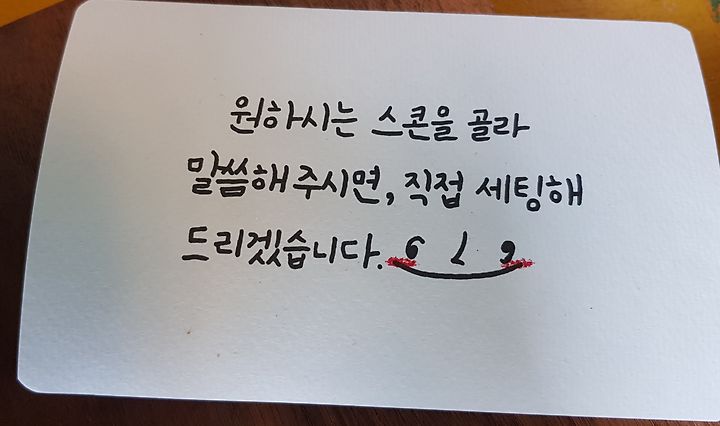 원하시는 스콘을 골라
말씀해주시면, 직접 세팅해
드리겠습니다.